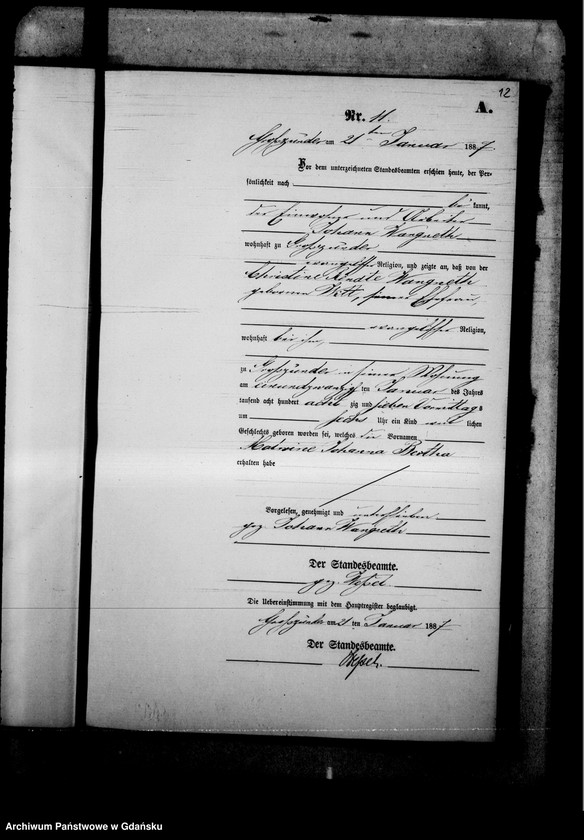 12
A.
Nr. 11.
Großzünder am 21ten Januar 1887
Vor dem unterzeichneten Standesbeamten erschien heute, der Per-
sönlichkeit nach
be kannt,
der Einwohner und Arbeiter
Johann Wangneth
wohnhaft zu Großzünder
evangelischer Religion, und zeigte an, daß von der
Christine Wangneth
geborene Witt, seiner Ehefrau,
evangelischer Religion,
wohnhaft bei ihm,
zu Großzünder in seiner Wohnung
am Januar des Jahres
tausend acht hundert acht zig und sieben Vormittags
um sechs Uhr ein Kind weib lichen
Geschlechts geboren worden sei, welches die Vornamen
Malwine Johanna Bertha
erhalten habe
Vorgelesen, genehmigt und unterschrieben
gez. Johann Wangneth
Der Standesbeamte.
gez. Wessel
Die Uebereinstimmung mit dem Hauptregister beglaubigt.
Großzünder am 21 ten Januar 1887
Der Standesbeamte.
Wessel.
Archiwum Państwowe w Gdańsku